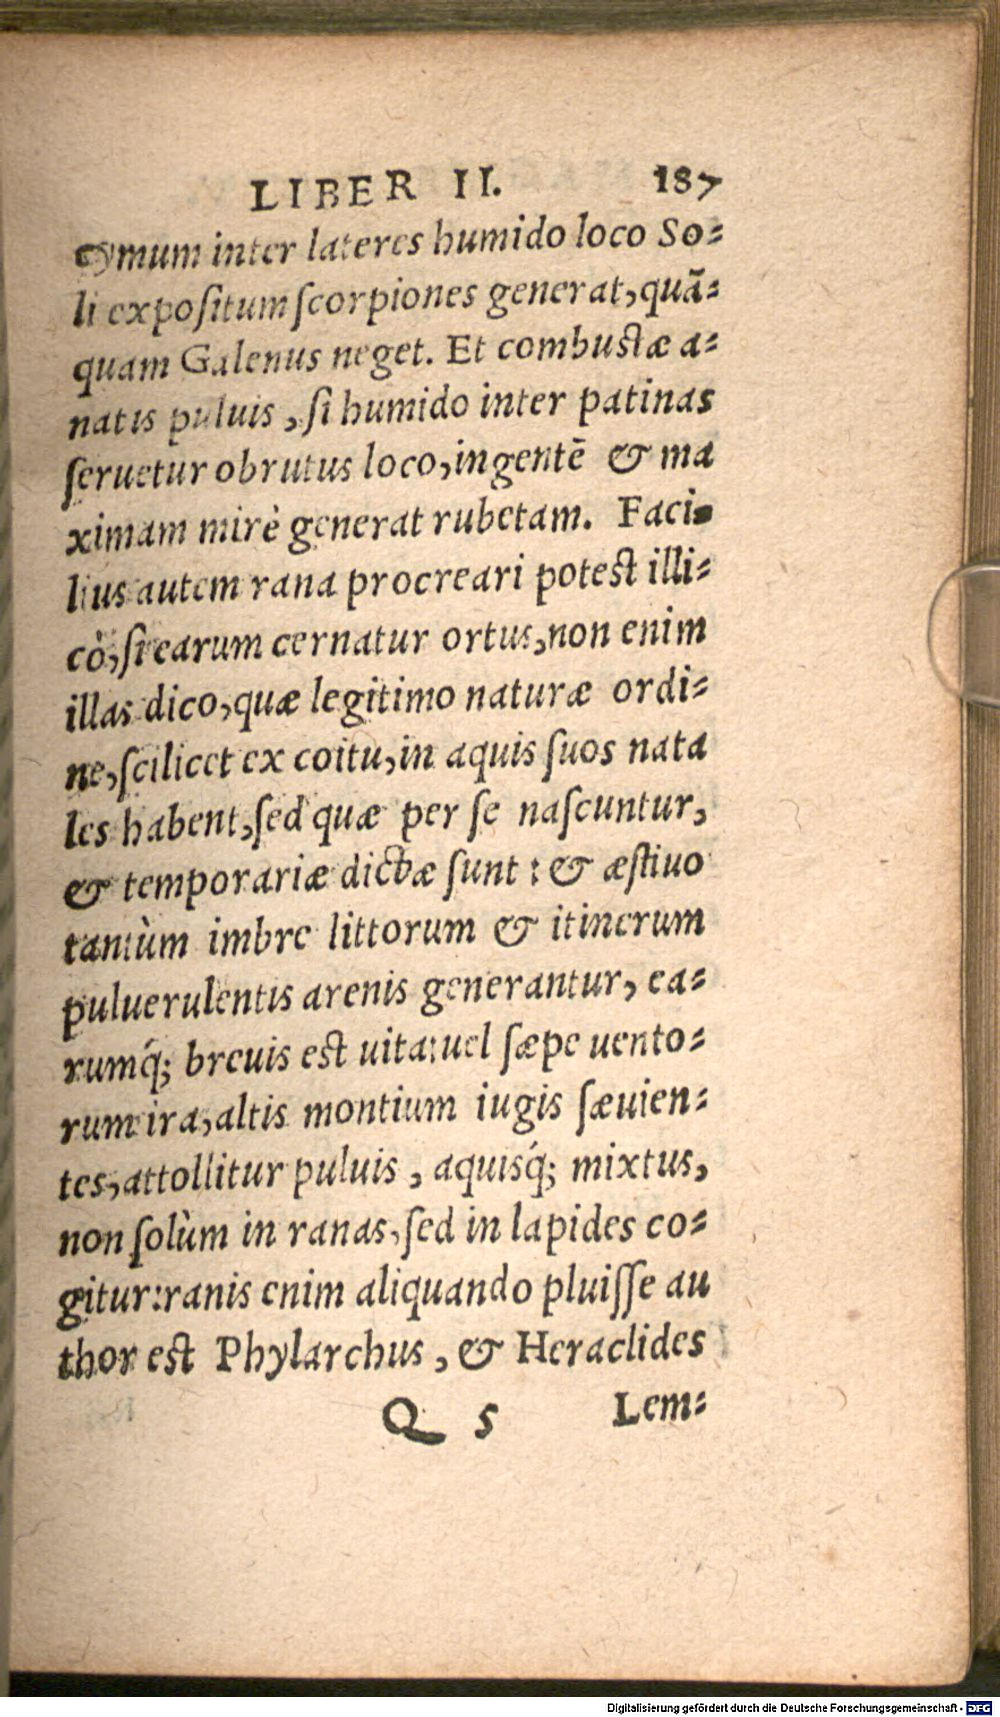 LIBER II. 187
cymum inter lateres humido loco So⸗
li expositum scorpiones generat, quā⸗
quam Galenus neget. Et combustæ a⸗
natis puluis, si humido inter patinas
seruetur obrutus loco, ingentē & ma
ximam mirè generat rubetam. Faci⸗
lius autem rana procreari potest illi⸗
cò, si earum cernatur ortus, non enim
illas dico, quæ legitimo naturæ ordi⸗
ne, scilicet ex coitu, in aquis suos nata
les habent, sed quæ per se nascuntur,
& temporariæ dictæ sunt: & æstiuo
tantùm imbre littorum & itinerum
puluerulentis arenis generantur, ea⸗
rumq́; breuis est uita: uel sæpe uento⸗
rum ira, altis montium iugis sæuien⸗
tes, attollitur puluis, aquisq́; mixtus,
non solùm in ranas, sed in lapides co⸗
gitur: ranis enim aliquando pluisse au
thor est Phylarchus, & Heraclides
Q 5 Lem⸗
Digitalisierung gefördert durch die Deutsche Forschungsgemeinschaft - DFG